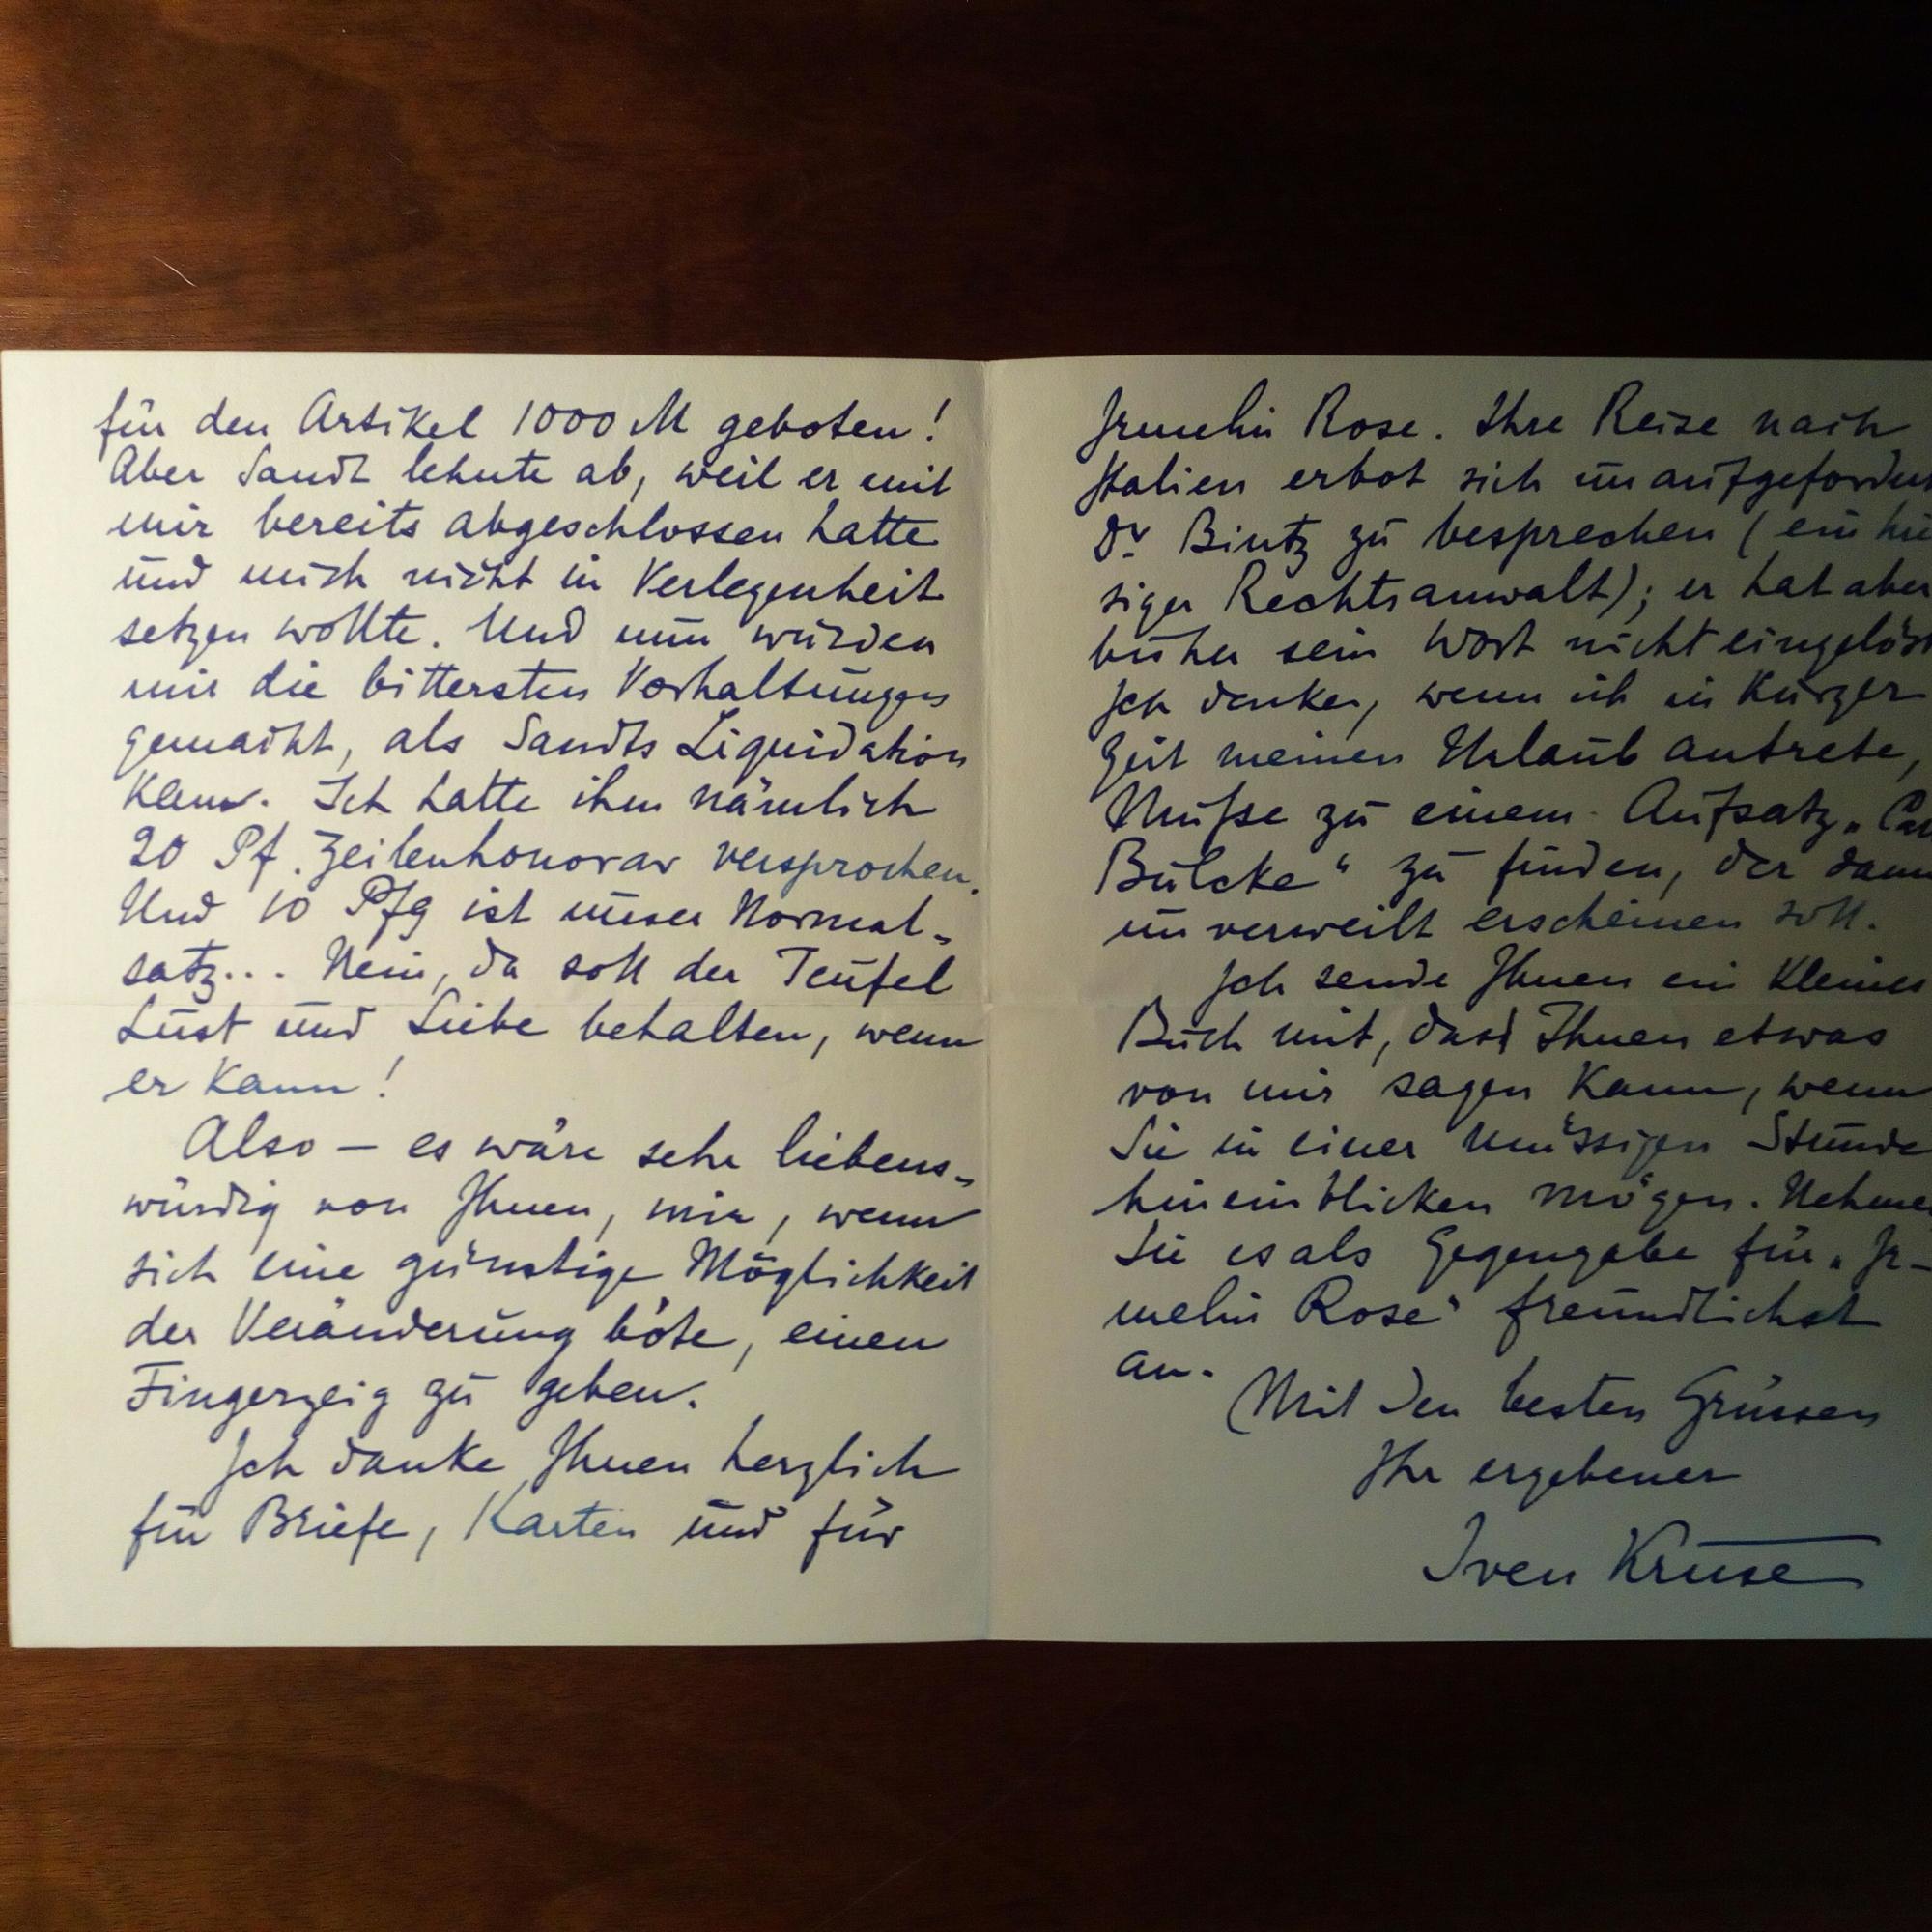 für den Artikel 1000 M geboten!
Aber Sandt lehnte ab, weil er mit
mir bereits abgeschlossen hatte
und mich nicht in Verlegenheit
setzen wollte. Und nun wurden
mir die bittersten Vorhaltungen
gemacht, als Sandts Liquidation
kam. Ich hatte ihm nämlich
20 Pf. Zeilenhonorar versprochen.
Und 10 Pfg ist unser Normal-
satz... Nein, da soll der Teufel
Lust und Liebe behalten, wenn
er kann!
Also – es wäre sehr liebens-
würdig von Ihnen, mir, wenn
sich eine günstige Möglichkeit
der Veränderung böte, einen
Fingerzeig zu geben.
Ich danke Ihnen herzlich
für Briefe, Karten und für
Irmelin Rose. Ihre Reise nach
Italien erbot sich unaufgefordert
Dr Bintz zu besprechen (ein hie
siger Rechtsanwalt); er hat aber
bisher sein Wort nicht eingelöst
Ich denke, wenn ich in kurzer
Zeit meinen Urlaub antrete,
Muße zu einem Aufsatz „Carl
Bulcke“ zu finden, der dann
unverweilt erscheinen soll.
Ich sende Ihnen ein kleines
Buch mit, dass Ihnen etwas
von mir sagen kann, wenn
Sie in einer müssigen Stunde
hineinblicken mögen. Nehmen
Sie es als Gegengabe für „Ir-
melin Rose“ freundlichst
an.
Mit den besten Grüssen
Ihr ergebener
Iven Kruse